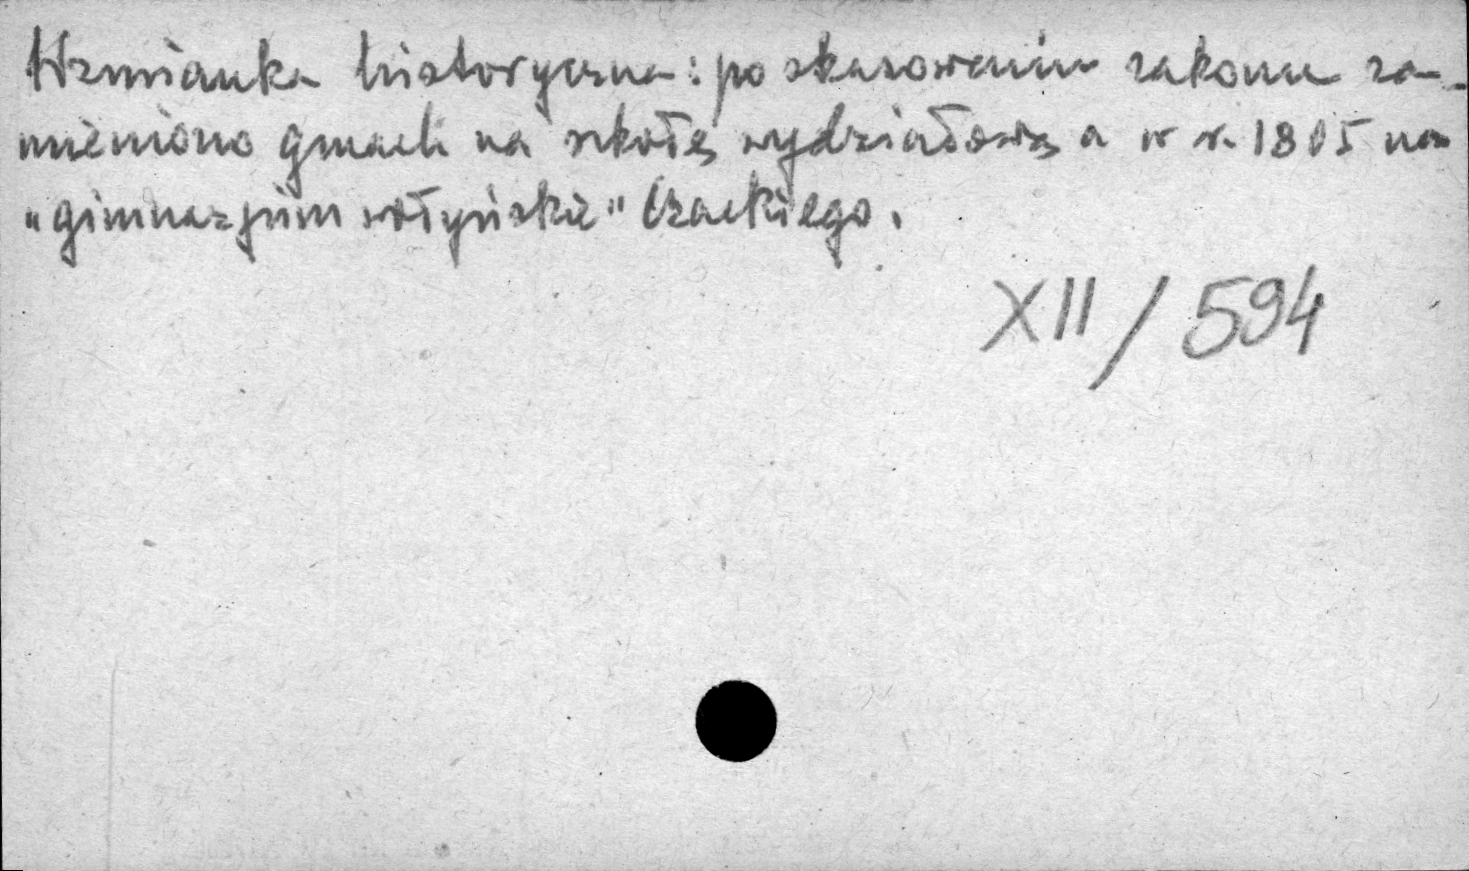 Wzmianka historyczna: po skasowaniu zakonu za-
mieniono gmach na szkołę wydziałową a w r. 1805 na
"gimnazjum wołyńskie" Czackiego.
XII/594